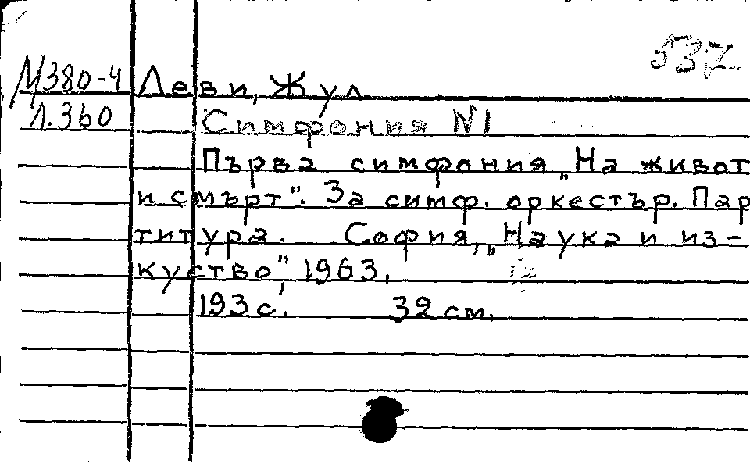 537
М380-4 Леви, Жул
Л.360 Симфония №1
Първа симфония „На живот
и смърт". За симф. оркестър. Пар
титура. София, „Наука и из-
куство", 1963.
193 с. 32 см.